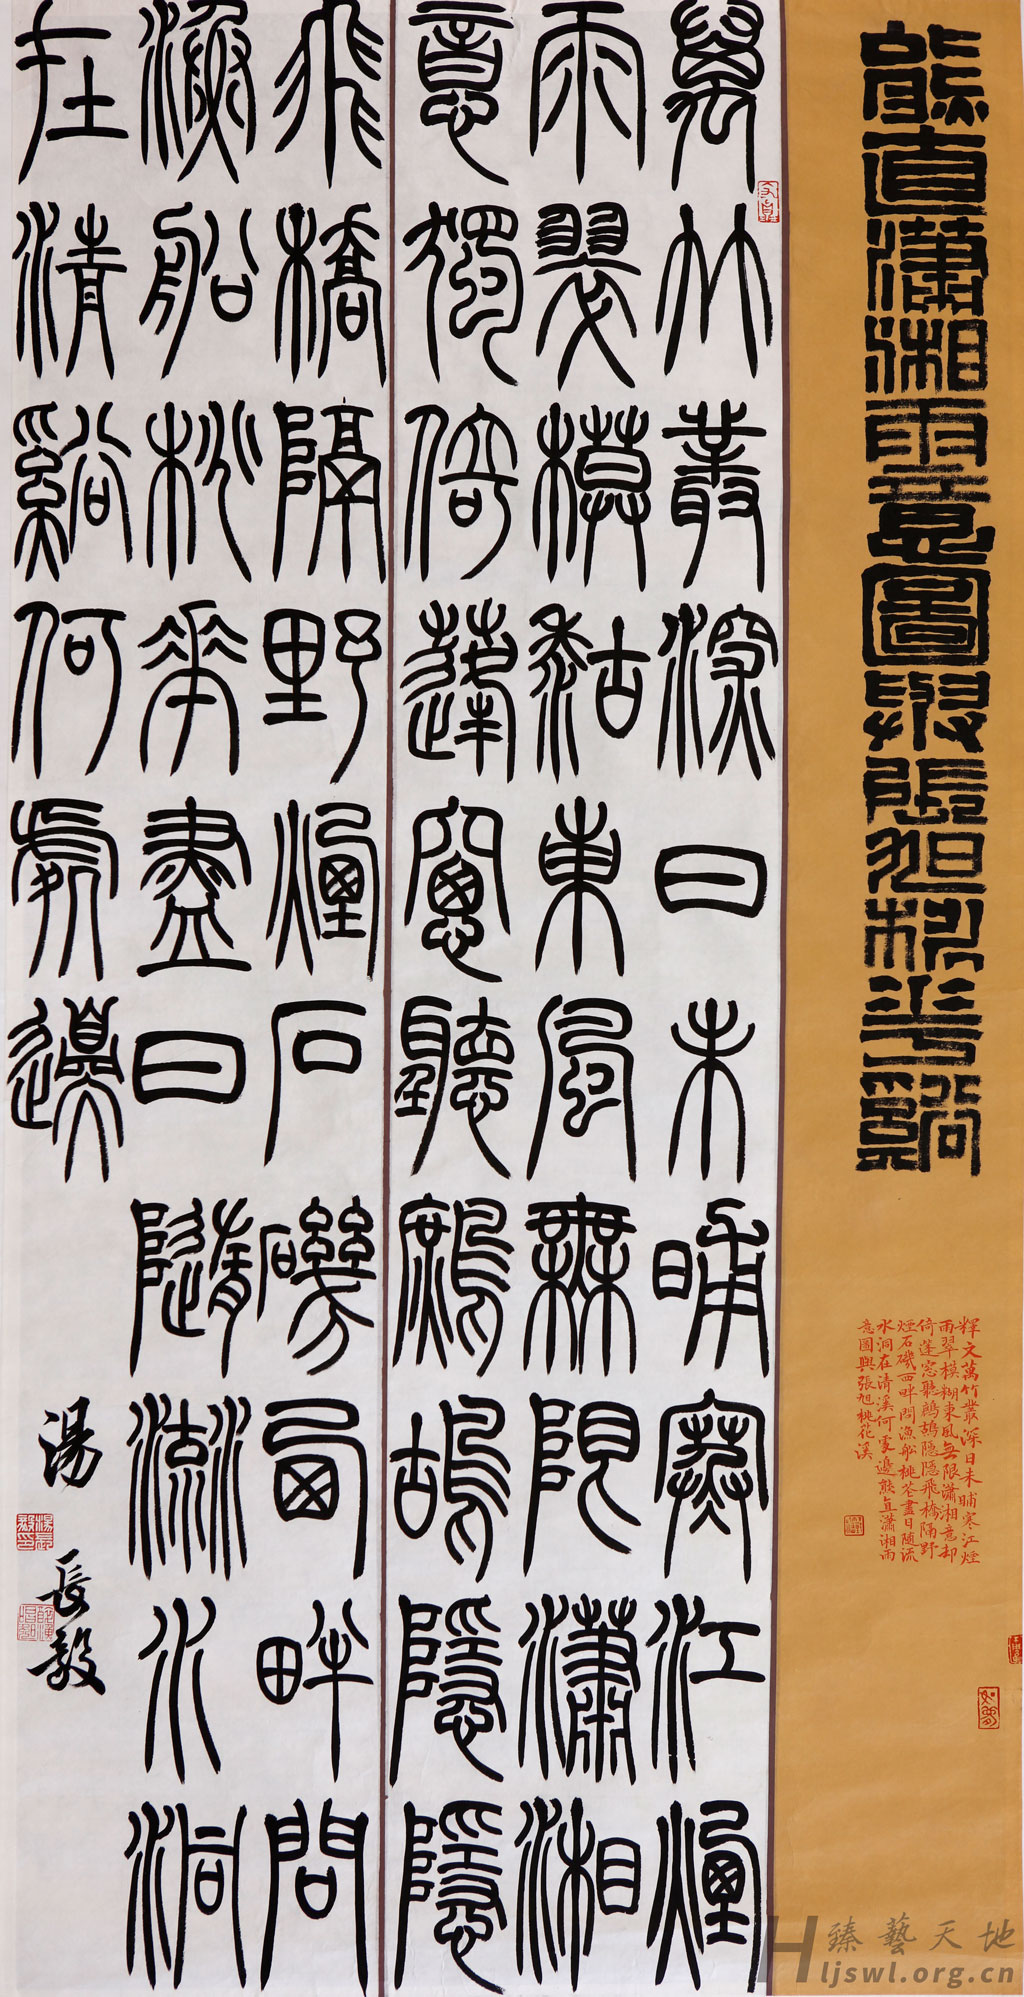 熊直瀟湘雨意圖與張旭桃花谿
釋文萬竹叢深日未晡寒江煙
雨翠模糊東風無限瀟湘意却
倚蓬窓聽鷓鴣隐隐飛橋隔野
煙石磯西畔問漁船桃花盡日随流
水洞在清溪何處邊熊直瀟湘雨
意圖與張旭桃花溪
萬竹叢深日未晡寒江煙
雨翠模糊東風無限瀟湘
意獨倚蓬窗聽鷓鴣隱隱
飛橋隔野煙石磯西畔問
漁船桃花盡日隨流水洞
在清谿何處邊
湯長毅
臻藝天地
Hljswl.org.cn